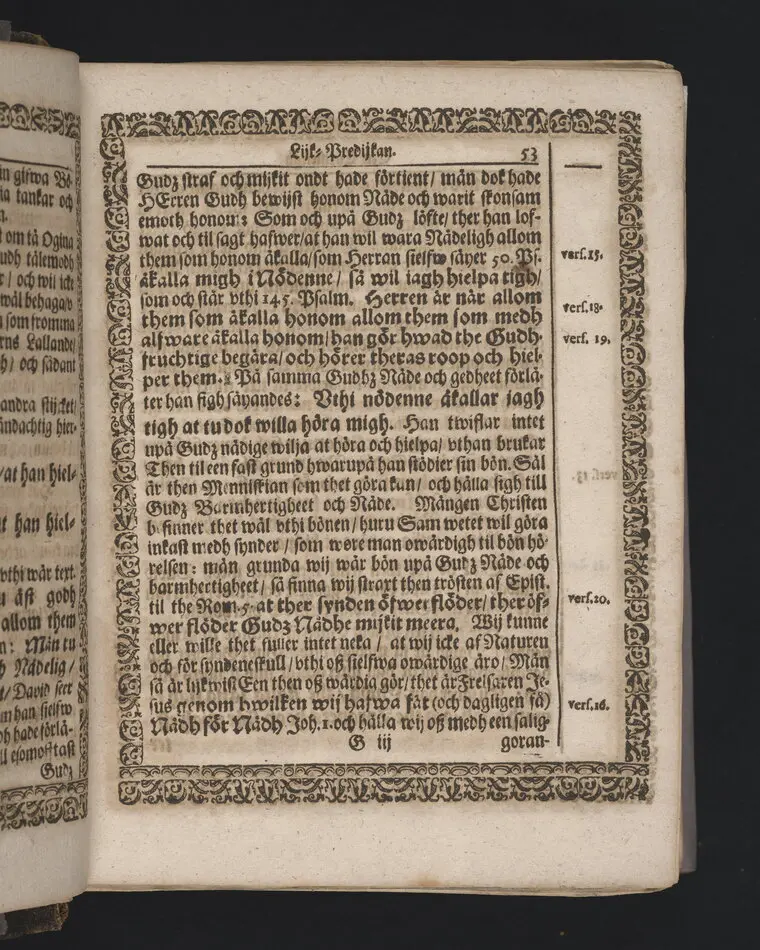 Lijk-Predijkan. 53
Gudz straf och mijkit ondt hade förtient/ män dok hade
HErren Gudh bewijst honom Nåde och warit skonsam
emoth honom: Som och upå Gudz löfte/ ther han lof-
wat och til sagt hafwer/ at han wil wara Nådeligh allom
them som honom åkalla/ som Herran sielfw säyer 50. Ps.
åkalla migh i Nödenne/ så wil iagh hielpa tigh/
som och står vthi 145. Psalm. Herren är när allom
them som åkalla honom allom them som medh
alfware åkalla honom/ han gör hwad the Gudh-
fruchtige begära/ och hörer theras roop och hiel-
per them. På samma Gudhz Nåde och gedheet förlå-
ter han sigh säyandes: Vthi nödenne åkallar jagh
tigh at tu dok willa höra migh. Han twiflar intet
upå Gudz nådige wilja at höra och hielpa/ vthan brukar
Then til een fast grund hwarupå han stödier sin bön. Säl
är then Menniskian som thet göra kan/ och hålla sigh till
Gudz Barmhertigheet och Nåde. Mången Christen
befinner thet wäl vthi bönen/ huru Sam wetet wil göra
inkast medh synder/ som wore man owärdigh til bön hö-
relsen: män grunda wij wår bön upå Gudz Nåde och
barmhertigheet/ så finna wij straxt then trösten af Epist.
til the Rom. 5. at ther synden öfwerflöder/ ther öf-
wer flöder Gudz Nådhe mijkit meera. Wij kunne
eller wille thet fuller intet neka/ at wij icke af Naturen
och för syndeneskull/ vthi oß sielfwa owärdige äro/ Män
så är lijkwist Een then oß wärdia gör/ thet är Frelsaren Je-
sus genom hwilken wij hafwa fåt (och dagligen få)
Nådh för Nådh Joh. 1. och hålla wij oß medh een salig-
G iij goran-
vers. 15.
vers. 18.
vers. 19.
vers. 20.
vers. 16.